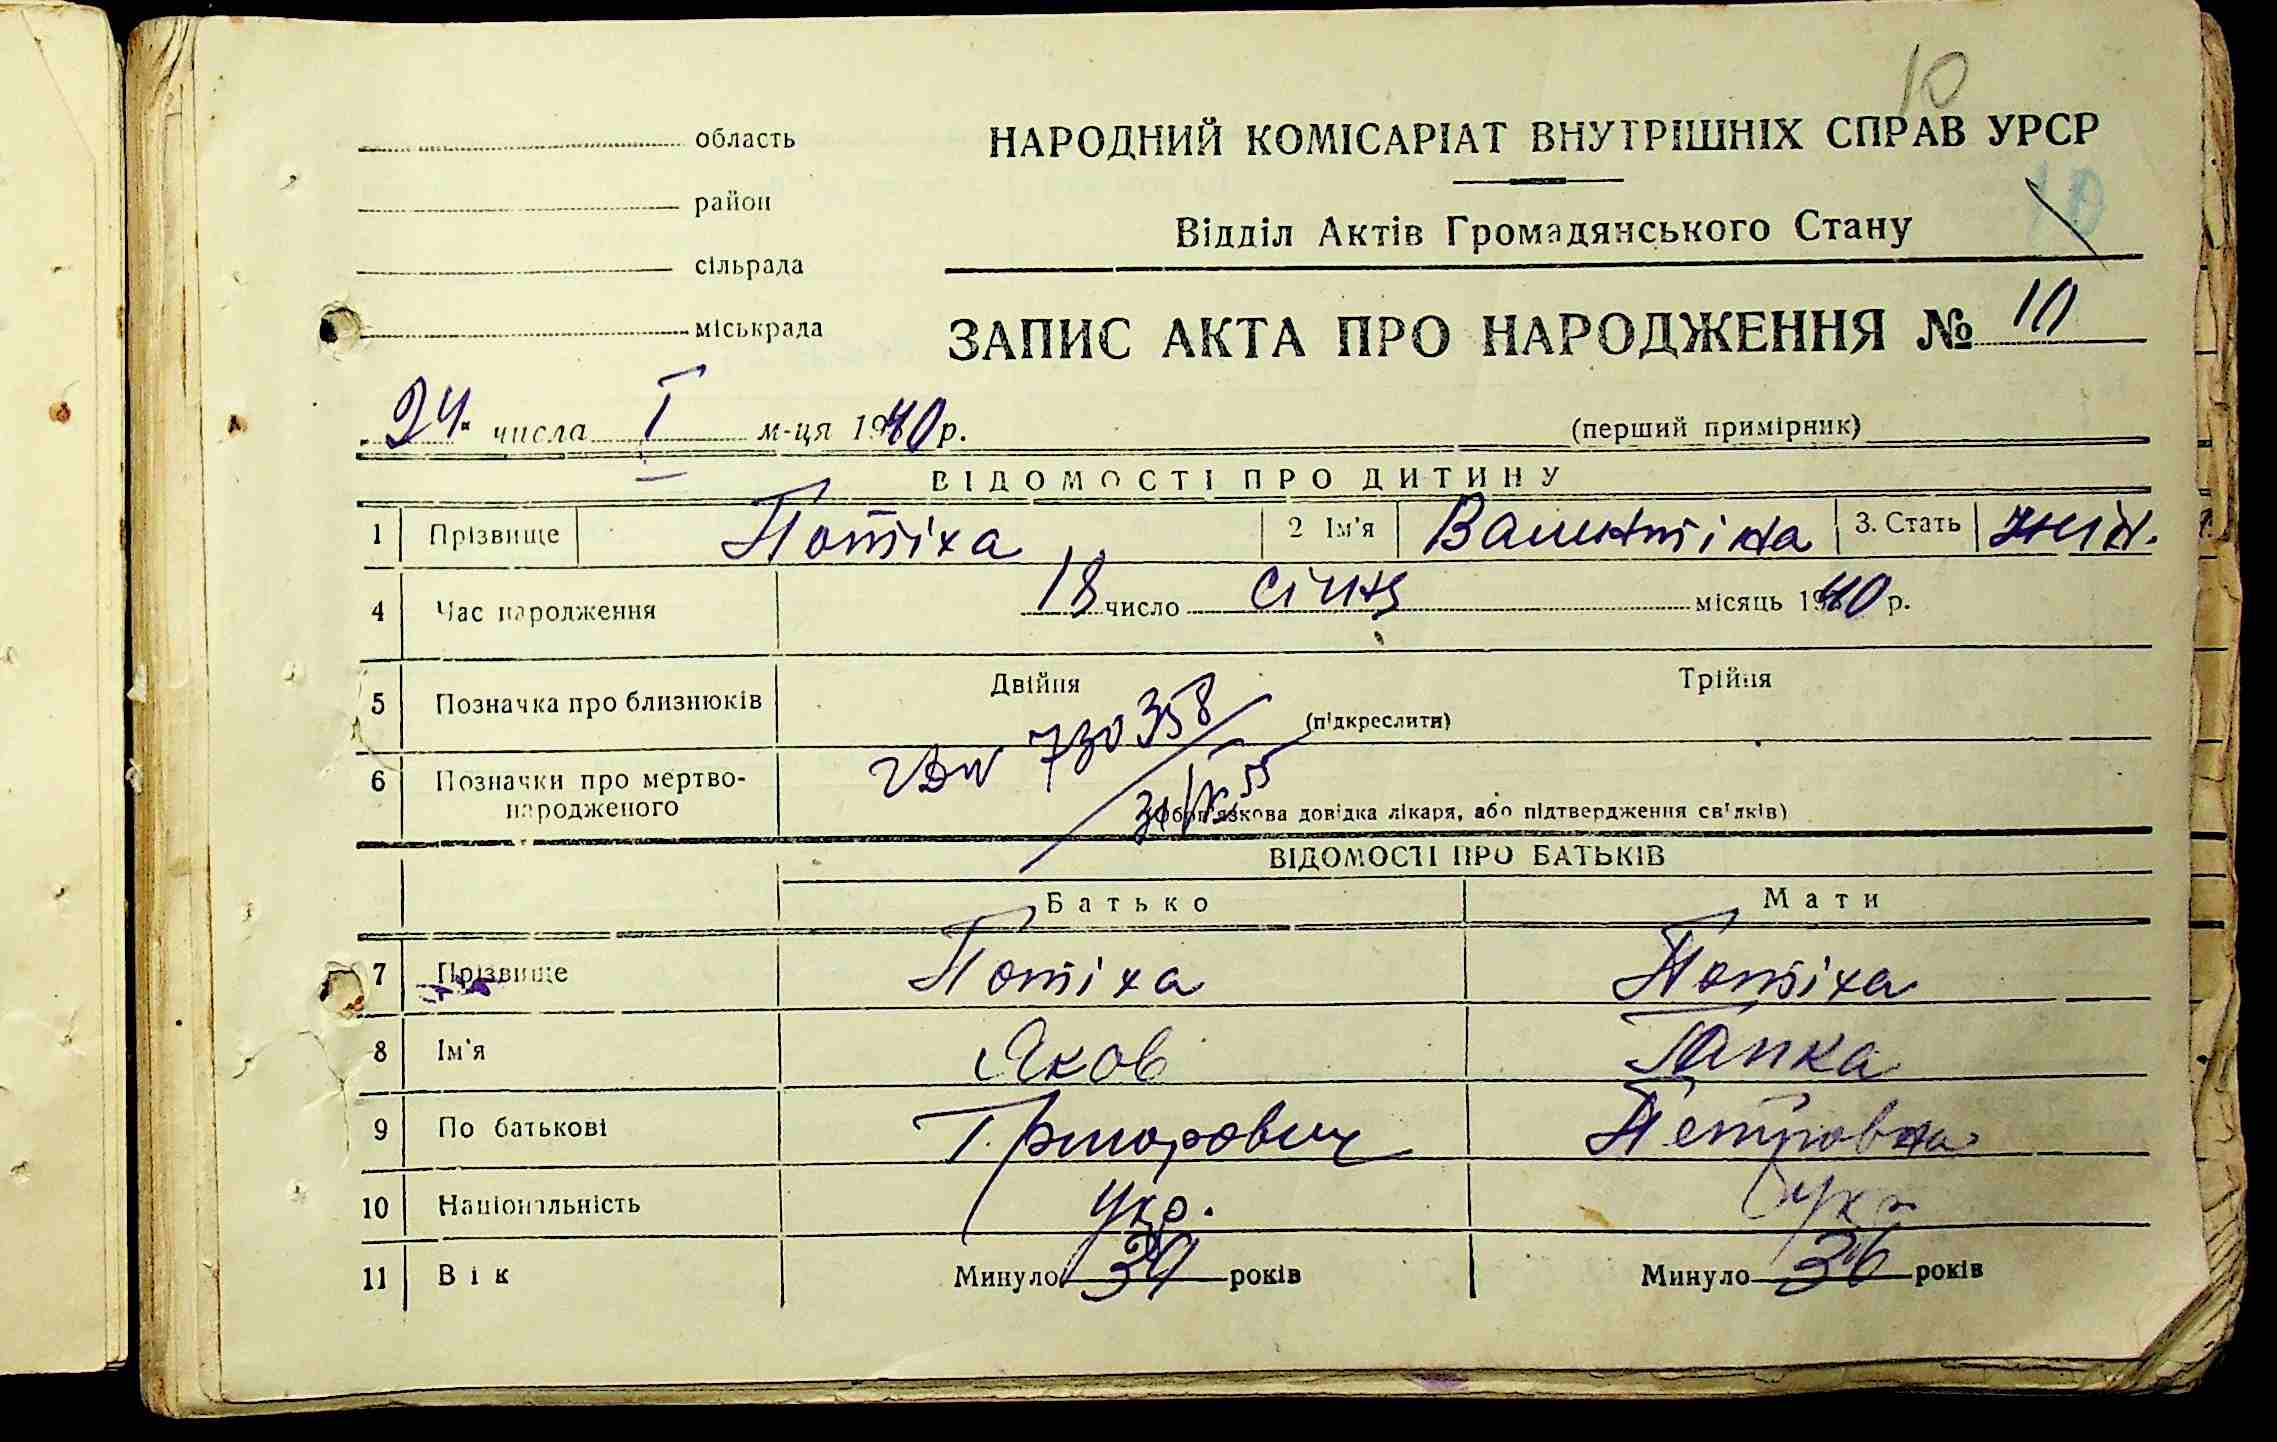 10
область
НАРОДНИЙ КОМІСАРІАТ ВНУТРІШНІХ СПРАВ УРСР
район
10
Відділ Актів Громадянського Стану
сільрада
міськрада
ЗАПИС АКТА ПРО НАРОДЖЕННЯ № 10
24 числа I м-ця 1940 р.
(перший примірник)
ВІДОМОСТІ ПРО ДИТИНУ
1 Прізвище Потіха 2 Ім'я Валентіна 3. Стать жін.
4 Час народження 18 число січня місяць 1940 р.
5 Позначка про близнюків Двійня Трійня
(підкреслити)
730358
6 Позначки про мертво-
народженого
(Обов'язкова довідка лікаря, або підтвердження свідків)
ВІДОМОСТІ ПРО БАТЬКІВ
Батько Мати
7 Прізвище Потіха Потіха
8 Ім'я Яков Ганка
9 По батькові Григорович Петровна
10 Національність Укр. Укр
11 Вік Минуло років Минуло 36 років